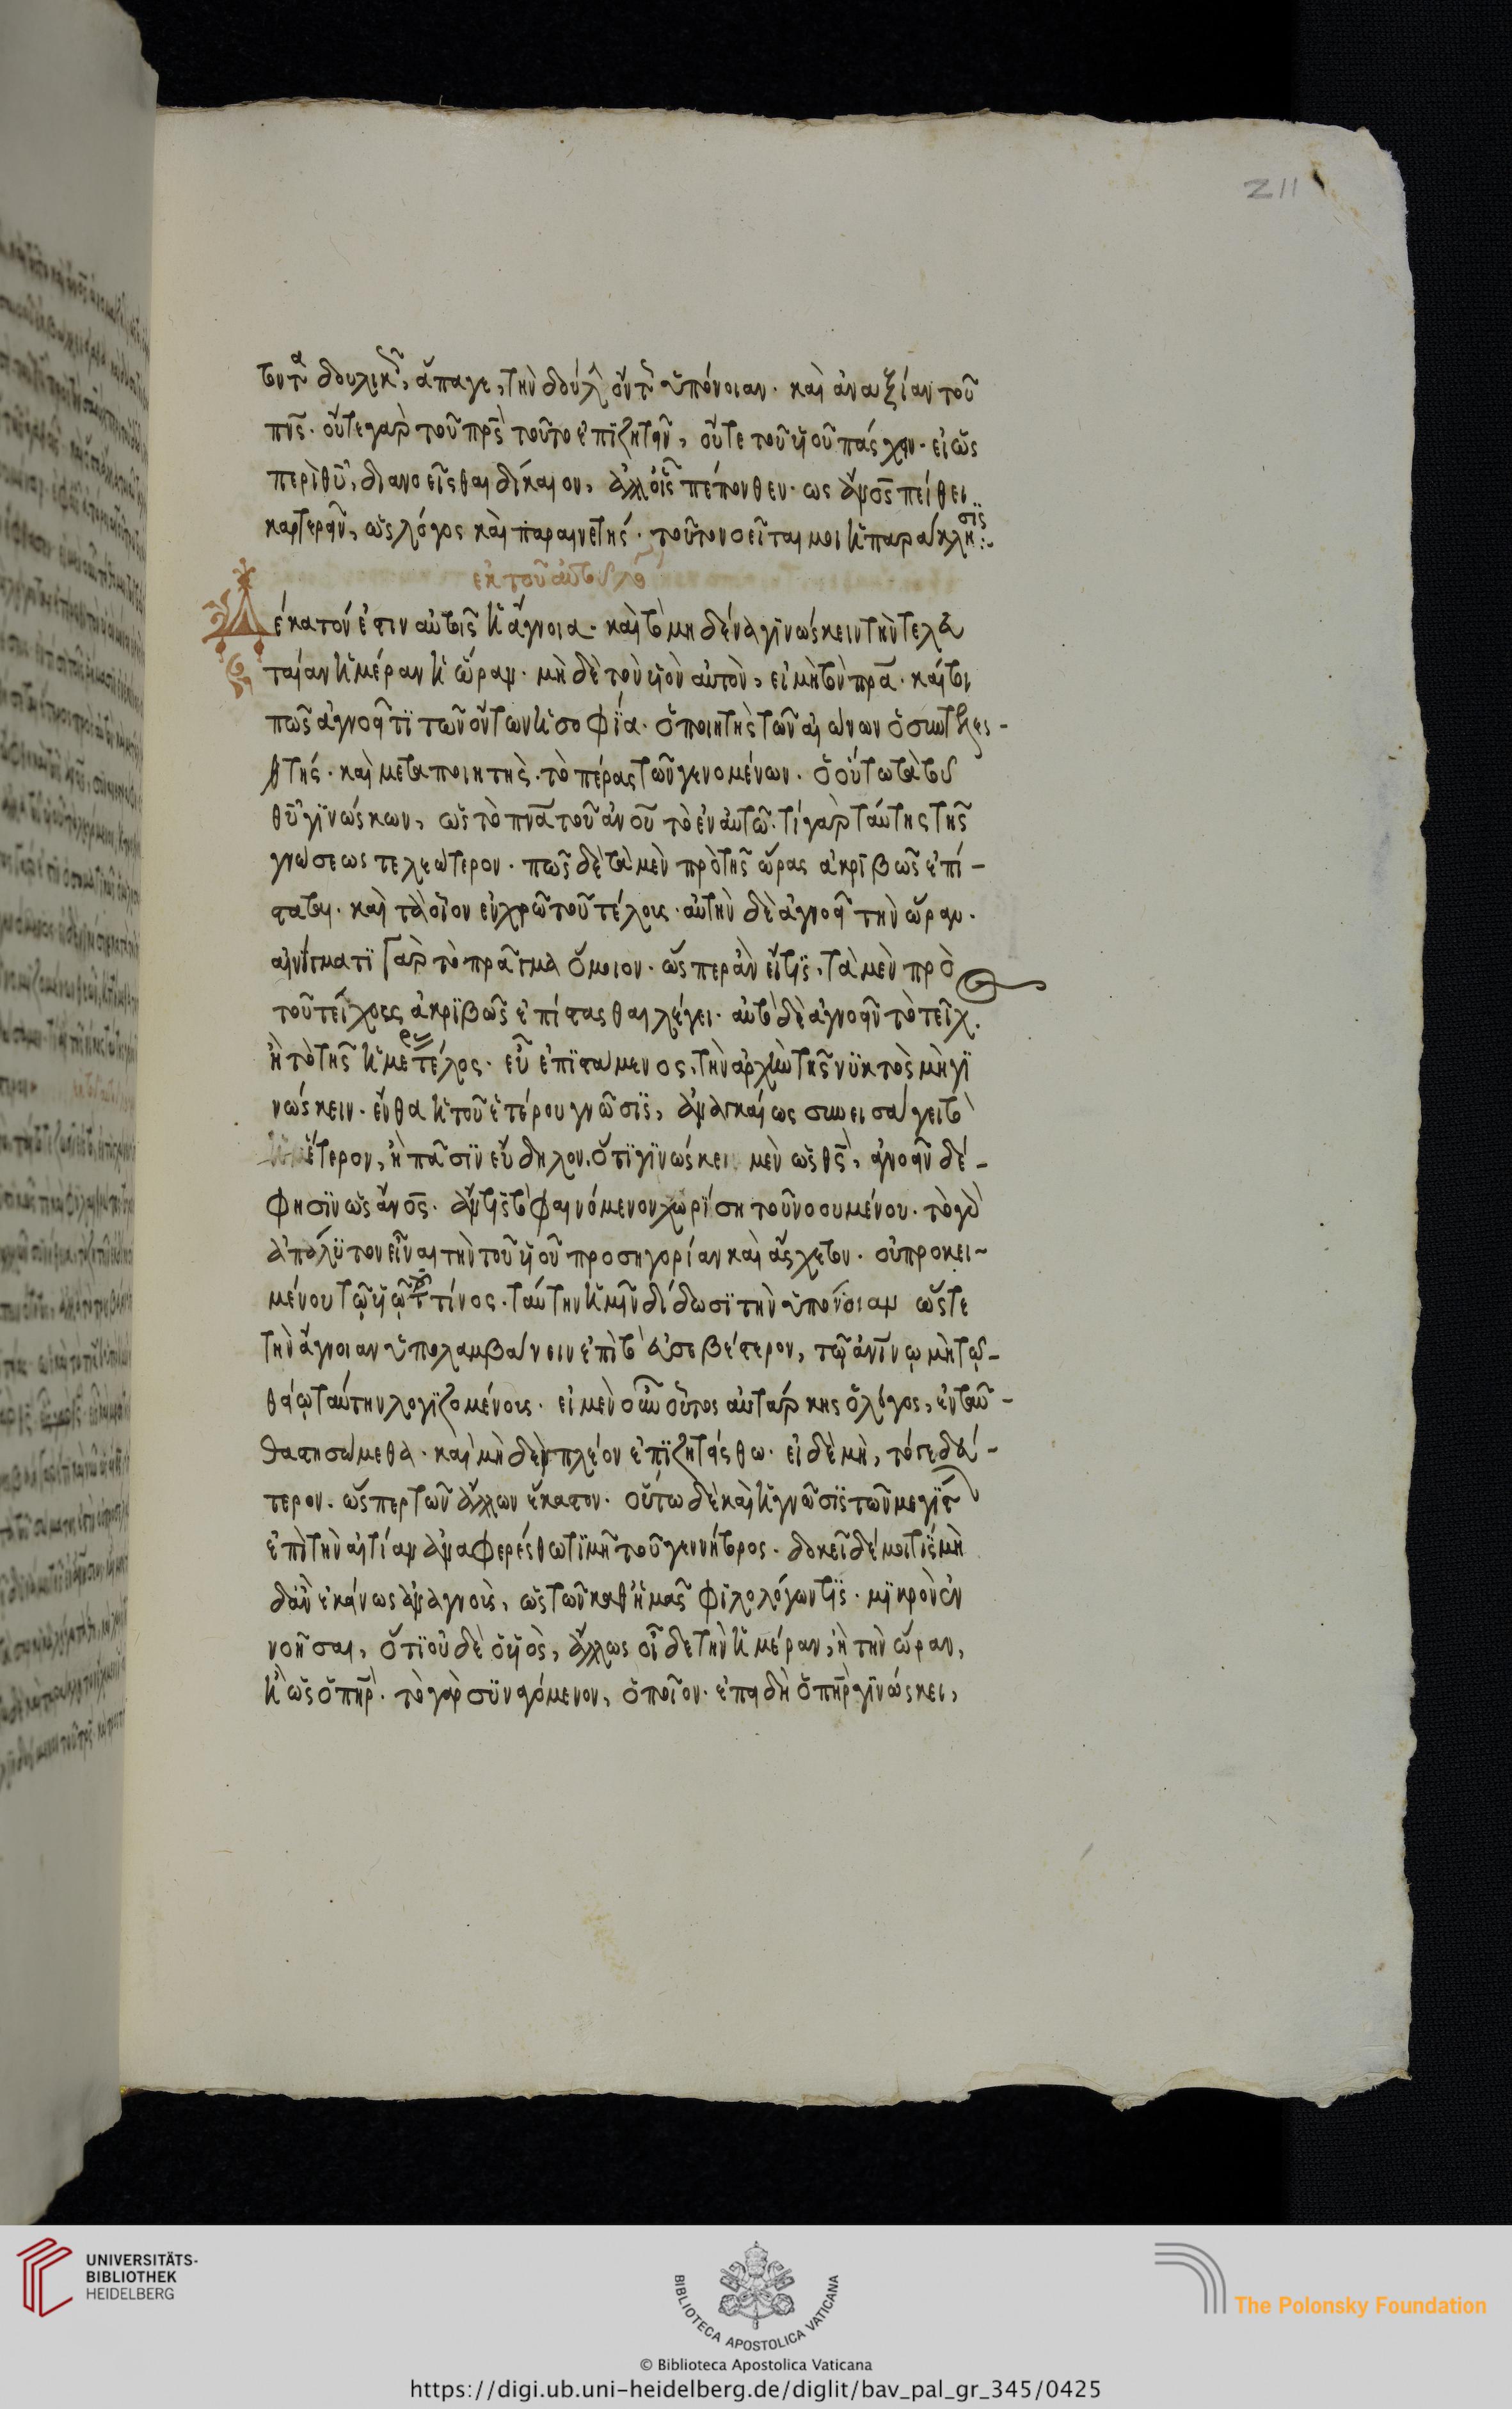 211
τουτ δουλικ, ἄπαγε, τὴν δούλ οὖν τ ὑπόνοιαν. καὶ ἀναξίαν τοῦ
πνς. οὔτε γαρ τοῦ πρς τοῦτο ἐπϊζητεῖν, οὔτε τοῦ ϋἱοῦ πάσχειν. εἰ ὡς
περὶ θυ, διανοεῖσθαι δίκαιον, ἀλλ οἷς πέπονθεν. ως ἄνος πείθει
καρτερεῖν, ὡς λόγος καὶ παραινετής. τοῦτο νοεῖται μοι ἡ παράκλησϊς
ἐκ τοῦ αὐτοῦ λο
Δέκατόν ἐστιν αὐτοῖς ἡ ἄγνοια. καὶ τὸ μηδένα γϊνώσκειν τὴν τελευ
ταίαν ἡμέραν ἢ ὥραν. μὴ δὲ τὸν ϋἱὸν αὐτὸν, εἰ μὴ τὸν πρα. καίτοι
πῶς ἀγνοεῖ τϊ τῶν ὄντων ἡ σοφΐα. ὁ ποιητὴς τῶν αἰώνων ὁ συντελεσ-
τής. καὶ μεταποιητὴς. τὸ πέρας τῶν γενομένων. ὁ οὕτω τὰ τοῦ
θυ γϊνώσκων, ὡς τὸ πνα τοῦ ανου τὸ ἐν αὐτῶ. τί γαρ ταύτης τῆς
γνώσεως τελεώτερον. πῶς δὲ τὰ μὲν πρὸ τῆς ὥρας ἀκρϊβῶς ἐπί-
σταται. καὶ τὰ οἷον ἐν χρῶ τοῦ τέλους. αὐτὴν δὲ ἀγνοεῖ τὴν ὥραν.
αἰνίγματϊ γαρ τὸ πρᾶγμα ὅμοιον. ὥσπερ ἂν εἴ τϊς, τὰ μὲν πρὸ
τοῦ τείχους ἀκρϊβῶς ἐπίστασθαι λέγει. αὐτὸ δὲ ἀγνοεῖν τὸ τεῖχ.
ἢ τὸ τῆς ἡμε τέλος. εὖ ἐπϊστάμενος, τὴν ἀρχὴν τῆς νϋκτὸς μὴ γϊ
νώσκειν. ἔνθα ἡ τοῦ ἑτέρου γνῶσϊς, ἀναγκαίως συνεισάγει τὸ
ἕτερον, ἢ πᾶσϊν εὔδηλον, ὅτϊ γϊνώσκει μὲν ὡς θς, ἀγνοεῖν δέ-
φησϊν ὡς ἄνος. ἄν τϊς τὸ φαινόμενον χωρΐση τοῦ νοουμένου. τὸ γὰρ
ἀπόλϋτον εἶναι τὴν τοῦ ϋἱοῦ προσηγορίαν καὶ ἄσχετον. οὐ προκει-
μένου τῶ ϋἱῶ τ τίνος. ταύτην ἡμῖν δίδωσϊ τὴν ὑπόνοιαν ὥστε
τὴν ἄγνοιαν ὑπολαμβάνειν ἐπὶ τὸ εὐσεβέστερον, τῶ ἀνίνω μὴ τῶ-
θείω ταύτην λογϊζομένους. εἰ μὲν οὖν οὗτος αὐτάρκης ὁ λόγος, ἐνταῦ-
θα στησώμεθα. καὶ μὴ δὲν πλέον ἐπϊζητείσθω. εἰ δὲ μὴ, τό γε δεύ-
τερον. ὥσπερ τῶν ἄλλων ἕκαστον. οὕτω δὲ καὶ ἡ γνῶσϊς τῶν μεγϊστ
ἐπὶ τὴν αἰτίαν ἀναφερέσθω τϊμῆ τοῦ γεννήτορος. δοκεῖ δέ μοι τϊς μὴ
δἂν ἐκείνως ἀναγνοὺς, ὡς τῶν καθ ἡμᾶς φϊλολόγων τϊς. μϊκρὸν ἐν
νοῆσαι, ὅτϊ οὐ δὲ ὁ ϋἱὸς, ἄλλως οἶδε τὴν ἡμέραν, ἢ τὴν ὥραν,
ἢ ὡς ὁ πηρ. τὸ γαρ σϋναγόμενον, ὁποῖον. ἐπειδὴ ὁ πηρ γϊνώσκει,
UNIVERSITÄTS-
BIBLIOTHEK
HEIDELBERG
BIBLIOTECA APOSTOLICA VATICANA
The Polonsky Foundation
© Biblioteca Apostolica Vaticana
https://digi.ub.uni-heidelberg.de/diglit/bav_pal_gr_345/0425